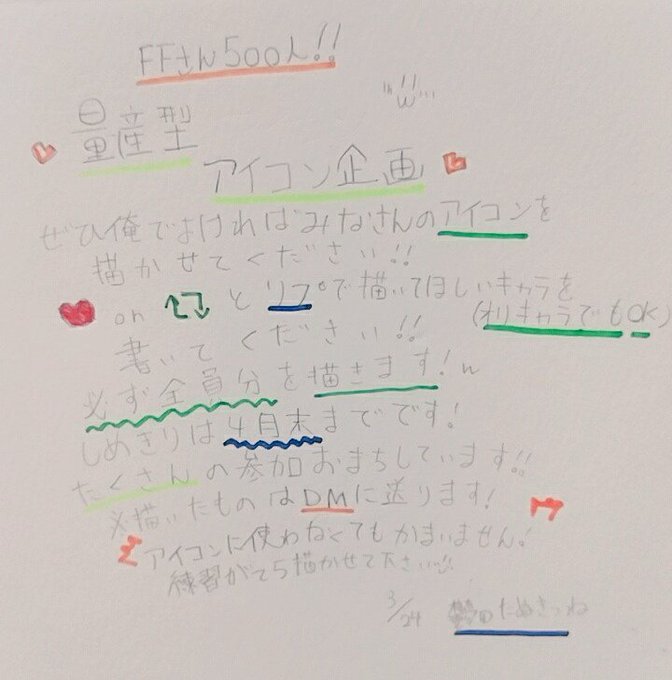 FFさん500人!!
量産型
アイコン企画
ぜひ俺でよければみなさんのアイコンを
描かせてください!!
on とリプで描いてほしいキャラを
(オリキャラでもOK)
書いてください!!
必ず全員分を描きます!w
しめきりは4月末までです!
たくさんの参加おまちしています!!
※描いたものはDMに送ります!
アイコンに使わなくてもかまいません!
練習がてら描かせて下さい!!
3/24